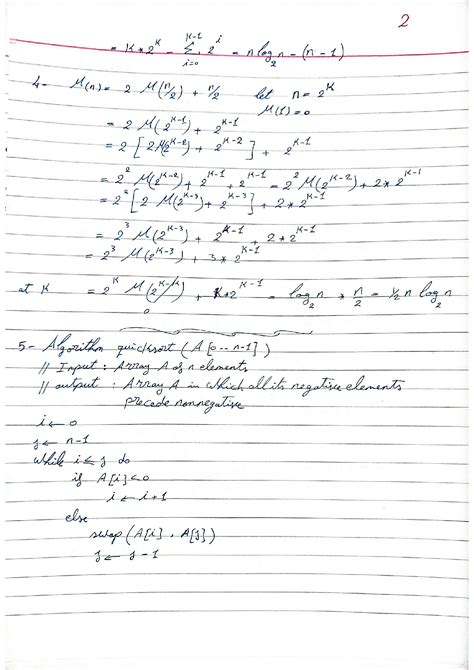 2
= K * 2^K - Σ_{i=0}^{K-1} 2^i = n log_2 n - (n - 1)
4- M(n) = 2 M(n/2) + n/2 let n = 2^K
M(1) = 0
= 2 M(2^{K-1}) + 2^{K-1}
= 2 [ 2 M(2^{K-2}) + 2^{K-2} ] + 2^{K-1}
= 2^2 M(2^{K-2}) + 2^{K-1} + 2^{K-1} = 2^2 M(2^{K-2}) + 2 * 2^{K-1}
= 2^2 [ 2 M(2^{K-3}) + 2^{K-3} ] + 2 * 2^{K-1}
= 2^3 M(2^{K-3}) + 2^{K-1} + 2 * 2^{K-1}
= 2^3 M(2^{K-3}) + 3 * 2^{K-1}
at K = 2^K M(2^{K-K}) + K * 2^{K-1} = log_2 n * n/2 = 1/2 n log_2 n
0
5- Algorithm quicksort (A [0..n-1])
// Input : Array A of n elements
// output : Array A in which all its negative elements
precede nonnegative
i ← 0
j ← n-1
while i ≤ j do
if A[i] < 0
i ← i+1
else
swap (A[i], A[j])
j ← j - 1